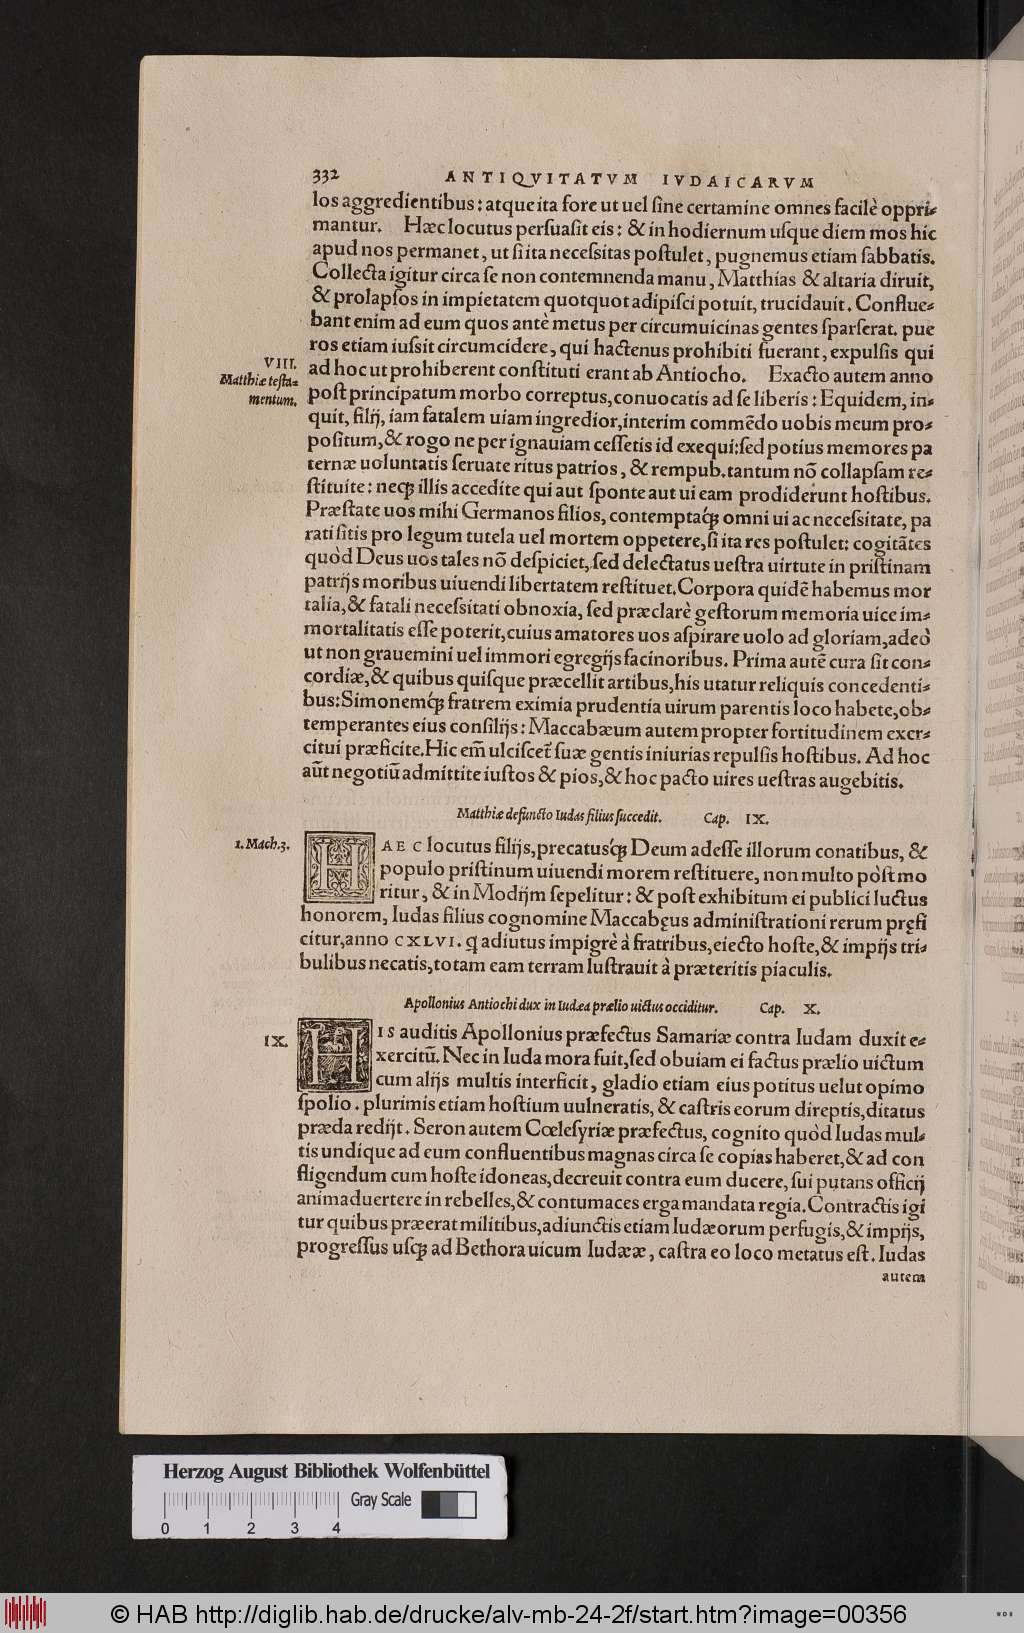 332 ANTIQVITATVM IVDAICARVM
los aggredientibus: atque ita fore ut uel ſine certamine omnes facilè oppri⸗
mantur. Hæc locutus perſuaſit eis: & in hodiernum uſque diem mos hic
apud nos permanet, ut ſi ita neceſsitas poſtulet, pugnemus etiam ſabbatis.
Collecta igitur circa ſe non contemnenda manu, Matthias & altaria diruit,
& prolapſos in impietatem quotquot adipiſci potuit, trucidauit. Conflue⸗
bant enim ad eum quos antè metus per circumuicinas gentes ſparſerat. pue
ros etiam iuſsit circumcidere, qui hactenus prohibiti fuerant, expulſis qui
VIII.
Matthiæ teſta⸗
mentum.
ad hoc ut prohiberent conſtituti erant ab Antiocho. Exacto autem anno
poſt principatum morbo correptus, conuocatis ad ſe liberis: Equidem, in⸗
quit, filij, iam fatalem uiam ingredior, interim commẽdo uobis meum pro⸗
poſitum, & rogo ne per ignauiam ceſſetis id exequi: ſed potius memores pa
ternæ uoluntatis ſeruate ritus patrios, & rempub. tantum nõ collapſam re⸗
ſtituite: neq; illis accedite qui aut ſponte aut ui eam prodiderunt hoſtibus.
Præſtate uos mihi Germanos filios, contemptaq́; omni ui ac neceſsitate, pa
rati ſitis pro legum tutela uel mortem oppetere, ſi ita res poſtulet: cogitãtes
quòd Deus uos tales nõ deſpiciet, ſed delectatus ueſtra uirtute in priſtinam
patrijs moribus uiuendi libertatem reſtituet. Corpora quidẽ habemus mor
talia, & fatali neceſsitati obnoxia, ſed præclarè geſtorum memoria uice im⸗
mortalitatis eſſe poterit, cuius amatores uos aſpirare uolo ad gloriam, adeò
ut non grauemini uel immori egregijs facinoribus. Prima autẽ cura ſit con⸗
cordiæ, & quibus quiſque præcellit artibus, his utatur reliquis concedenti⸗
bus: Simonemq́; fratrem eximia prudentia uirum parentis loco habete, ob⸗
temperantes eius conſilijs: Maccabæum autem propter fortitudinem exer⸗
citui præficite. Hic em̃ ulciſcet̃ ſuæ gentis iniurias repulſis hoſtibus. Ad hoc
aũt negotiũ admittite iuſtos & pios, & hoc pacto uires ueſtras augebitis.
Matthiæ defuncto Iudas filius ſuccedit. Cap. IX.
1. Mach. 3.
HAEC locutus filijs, precatusq́; Deum adeſſe illorum conatibus, &
populo priſtinum uiuendi morem reſtituere, non multo pòſt mo
ritur, & in Modijm ſepelitur: & poſt exhibitum ei publici luctus
honorem, Iudas filius cognomine Maccabęus adminiſtrationi rerum pręfi
citur, anno CXLVI. q̃ adiutus impigrè à fratribus, eiecto hoſte, & impijs tri⸗
bulibus necatis, totam eam terram luſtrauit à præteritis piaculis.
Apollonius Antiochi dux in Iudæa prælio uictus occiditur. Cap. X.
IX.
HIS auditis Apollonius præfectus Samariæ contra Iudam duxit e⸗
xercitũ. Nec in Iuda mora fuit, ſed obuiam ei factus prælio uictum
cum alijs multis interficit, gladio etiam eius potitus uelut opimo
ſpolio. plurimis etiam hoſtium uulneratis, & caſtris eorum direptis, ditatus
præda redijt. Seron autem Cœleſyriæ præfectus, cognito quòd Iudas mul⸗
tis undique ad eum confluentibus magnas circa ſe copias haberet, & ad con
fligendum cum hoſte idoneas, decreuit contra eum ducere, ſui putans officij
animaduertere in rebelles, & contumaces erga mandata regia. Contractis igi
tur quibus præerat militibus, adiunctis etiam Iudæorum perfugis, & impijs,
progreſſus uſq; ad Bethora uicum Iudææ, caſtra eo loco metatus eſt. Iudas
autem
Herzog August Bibliothek Wolfenbüttel
Gray Scale
0 1 2 3 4
© HAB http://diglib.hab.de/drucke/alv-mb-24-2f/start.htm?image=00356